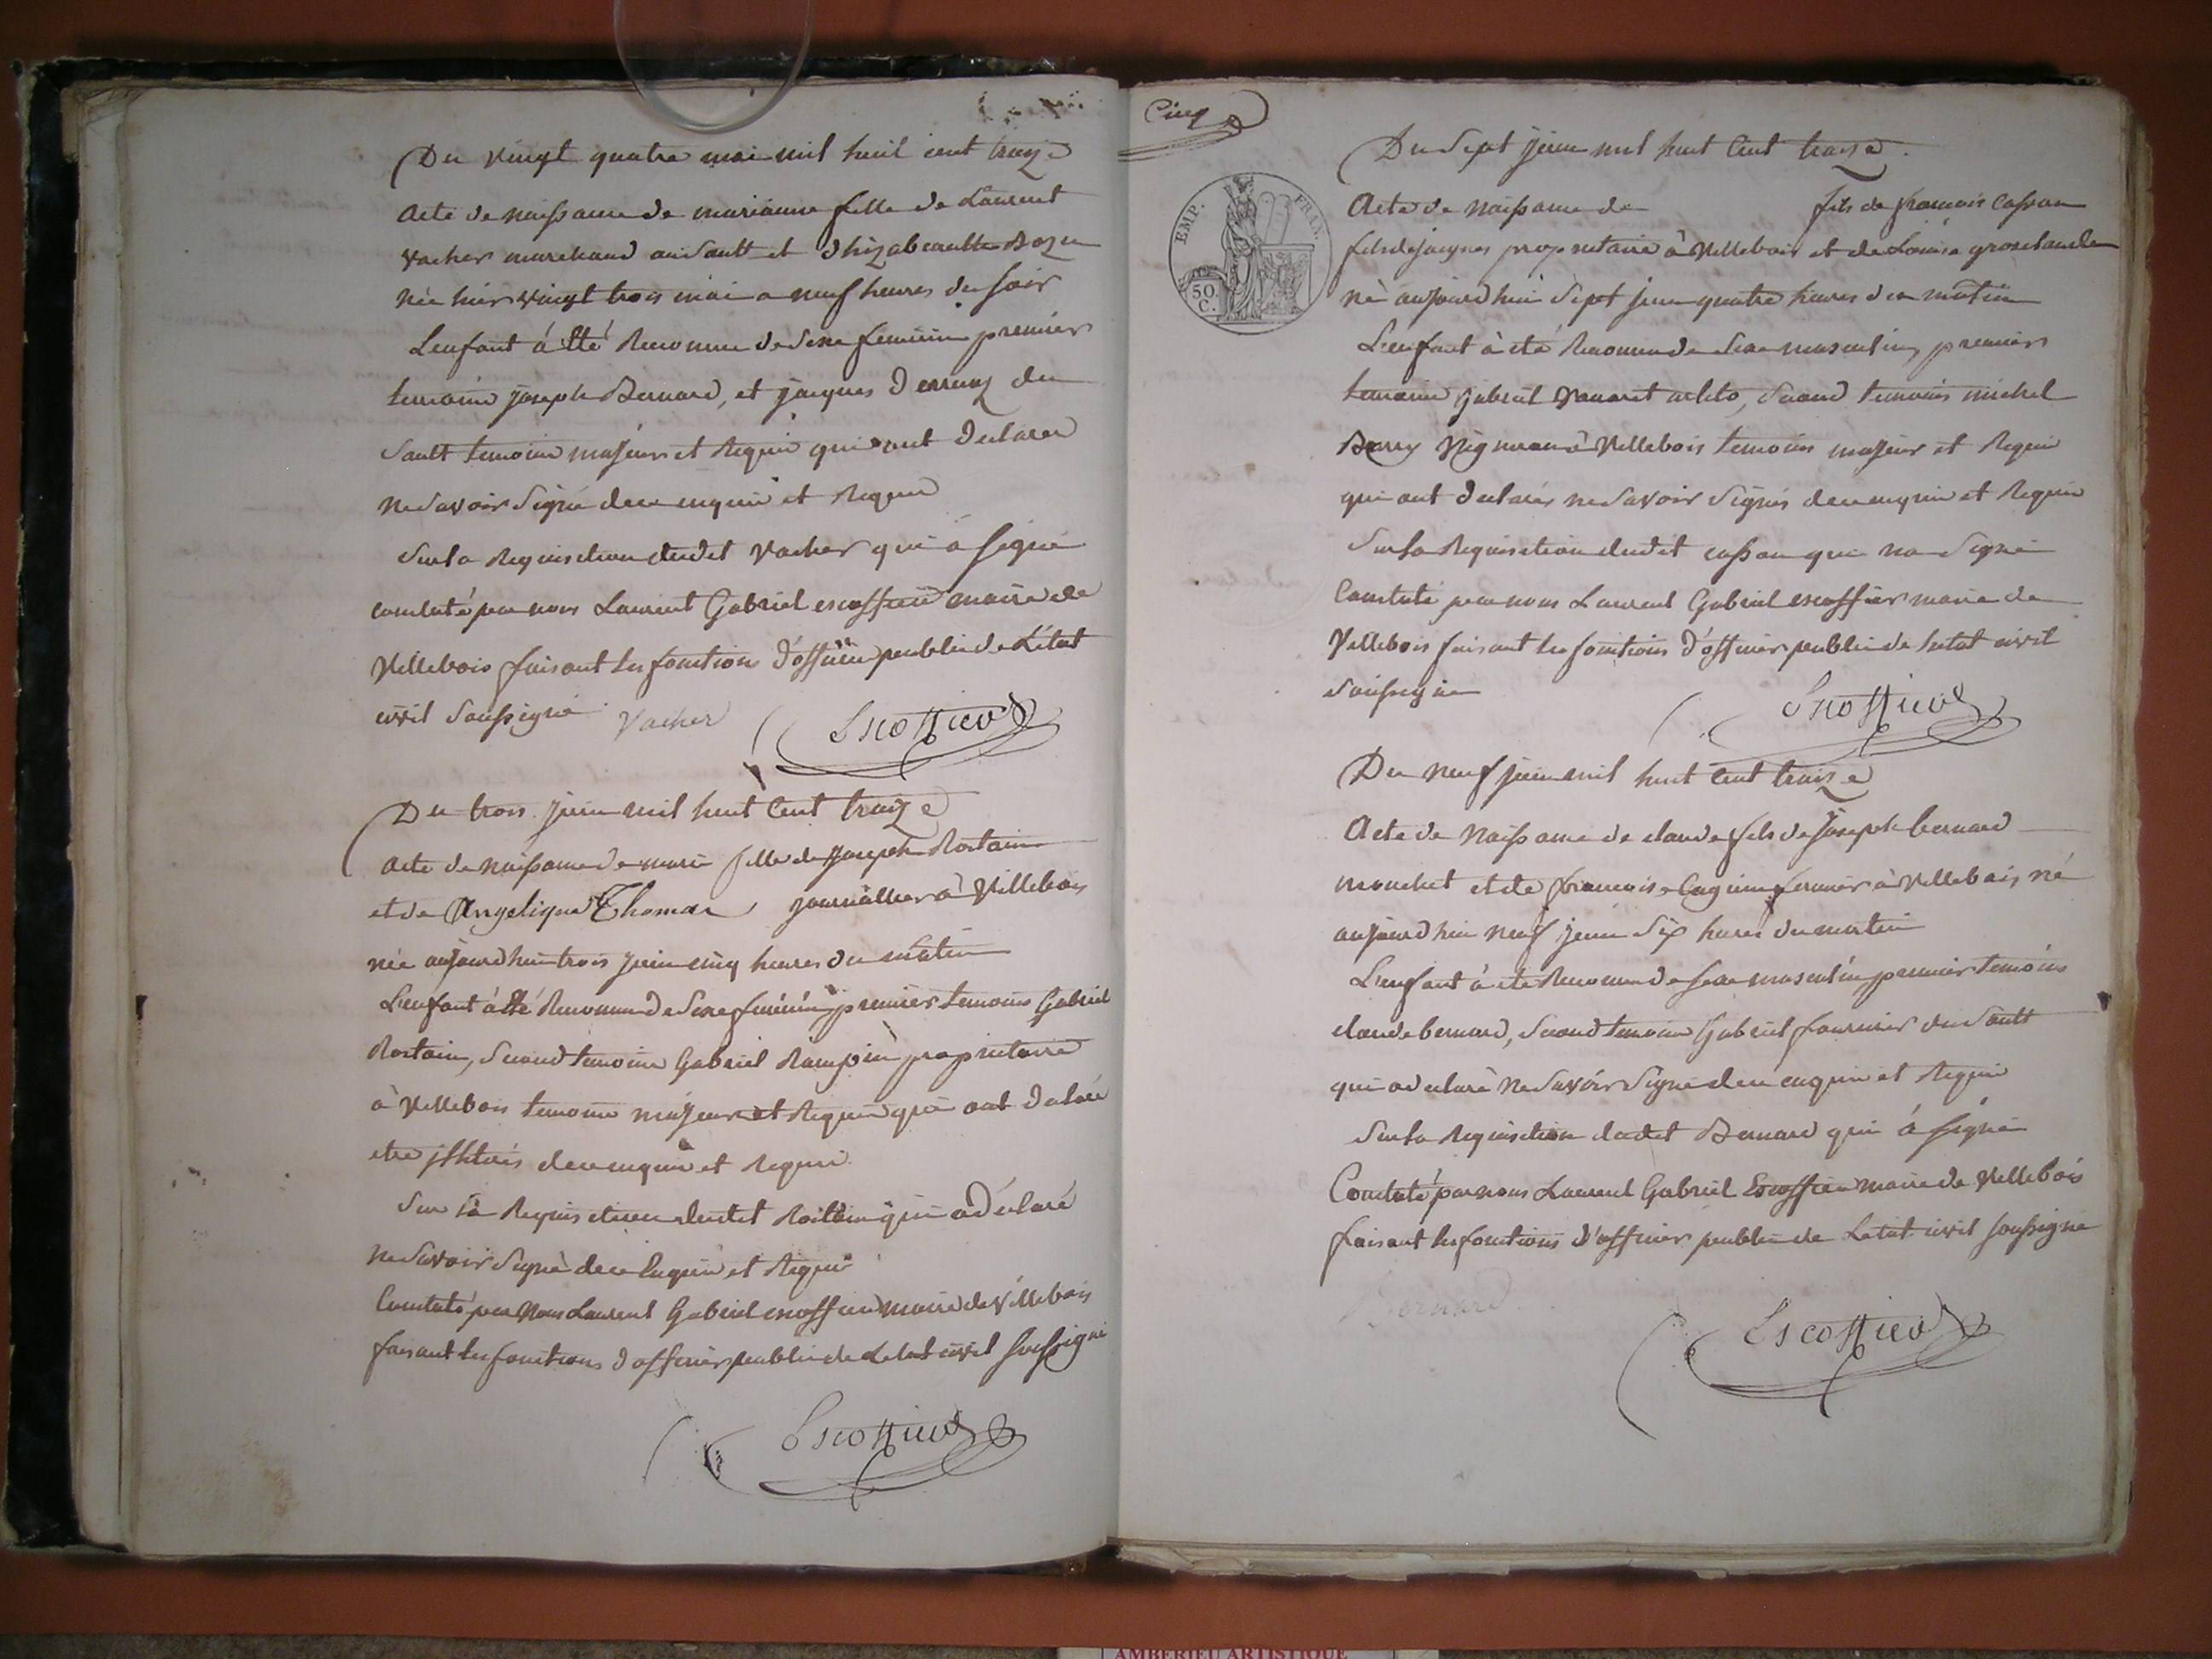 Du vingt quatre mai mil huit cent treize
Acte de naissance de marianne fille de Laurent
vacher marchand au Sault et
née hier vingt trois mai a neuf heures du soir
L'enfant à été Reconnu de Sexe feminin premier
temoin joseph Bernard, et jacques du
Sault temoin majeurs et Requi qui ont declarer
ne Savoir Signé de ce enquis et Requi
Sur la Requisition dudit Vacher qui à signé
constaté par nous Laurent Gabriel escoffier maire de
Villebois faisant les fonctions d'officier public de L'état
civil Soussigné
Vacher Escoffier
Du trois juin mil huit Cent treize
Acte de naissance de marie fille de joseph Rostain
et de Angelique Thomas journallier à Villebois
née aujourdhui trois juin cinq heures du matin
L'enfant à été Reconnu de Sexe feminin premier temoin Gabriel
Rostain, Second temoin Gabriel proprietaire
à Villebois temoin majeur et Requi qui ont Declaré
etre de ce enquis et Requi
Sur la Requisition dudit Rostain qui à Déclaré
ne Savoir Signé de ce Enquis et Requi
Constaté par Nous Laurent Gabriel escoffier maire de Villebois
faisant les fonctions d'officier public de Letat civil Soussigné
Escoffier
Cinq
EMP. FRAN.
50
C.
Du Sept juin mil huit Cent treize
Acte de naissance de fils de francois Cassan
fils de jacques proprietaire à Villebois et de Louise
né aujourdhui Sept juin quatre heures du matin
L'enfant à été Reconnu de Sexe masculin premier
temoin Gabriel Second temoin michel
Vigneron à Villebois temoin majeur et Requi
qui ont declarés ne Savoir Signés de ce enquis et Requis
Sur la Requisition dudit cassan qui na Signé
Constaté par nous Laurent Gabriel escoffier maire de
Villebois faisant les fonctions d'officier public de letat civil
Soussigné
Escoffier
Du neuf juin mil huit Cent treize
Acte de Naissance de claude fils de Joseph bernard
et de francoise fermier à Villebois né
aujourdhui neuf juin Six heures du matin
L'enfant à été Reconnu de Sexe masculin premier temoin
claude bernard, Second temoin Gabriel fournier du Sault
qui a declaré ne Savoir Signé de ce enquis et Requi
Sur la Requisition dudit Bernard qui à signé
Constaté par nous Laurent Gabriel Escoffier maire de Villebois
faisant les fonctions d'officier public de Letat civil soussigné
Bernard
Escoffier
AMBERIEU ARTISTIQUE